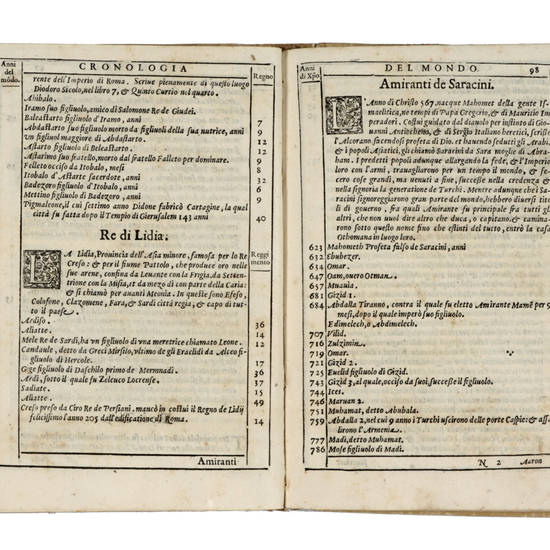 Anni del mōdo.
CRONOLOGIA
Regno
rente dell'Imperio di Roma. Scriue pienamente di questo luogo
Diodoro Sicolo, nel libro 7, & Quinto Curtio nel quarto.
Abibalo.
Iramo suo figliuolo, amico di Salomone Re de Giudei.
Baleastarto figliuolo d'Iramo, anni 7
Abdastarto suo figliuolo morto da figliuoli della sua nutrice, anni 9
Vn figliuol maggiore di Abdastarto. 12
Astarto figliuolo di Beleastarto. 12
Astarimo suo fratello, morto dal fratello Falleto per dominare. 9
Falleto occiso da Itobalo, mesi 8
Itobalo d'Astarte sacerdote, anni 32
Badezoro figliuolo d'Itobalo, anni 6
Mettino figliuolo di Badezoro, anni 9
Pigmaleone, il cui settimo anno Didone fabricò Cartagine, la qual
città fu fatta dopo il Tempio di Gierusalem 143 anni 40
Re di Lidia.
LA Lidia, Prouincia dell'Asia minore, famosa per lo Re
Creso: & per il fiume Pattolo, che produce oro nelle
sue arene, confina da Leuante con la Frigia, da Setten-
trione con la Misia, et da mezo dì con parte della Caria:
& si chiamò per auanti Meonia. In questa sono Efeso,
Colofone, Clazomene, Fara, & Sardi città regia, & capo di tut-
to il paese.
Reggimento
Ardiso. 36
Aliatte. 14
Mele Re de Sardi, ha vn figliuolo di vna meretrice chiamato Leone. 12
Candaule, detto da Greci Mirsilo, vltimo de gli Eraclidi da Alceo fi-
gliuolo di Hercole. 17
Gige figliuolo di Daschilo primo de Mermnadi. 36
Ardi, sotto il quale fu Zeleuco Locrense. 37
Sadiate. 15
Aliatte. 49
Creso preso da Ciro Re de Persiani. mancò in costui il Regno de Lidij
felicissimo l'anno 205 dall'edificatione di Roma. 14
Amiranti
Anni di Xp̄o
DEL MONDO.
98
Amiranti de Saracini.
L'Anno di Christo 567, nacque Mahomet della gente Is-
maelitica, ne tempi di Papa Gregorio, & di Mauritio Im-
peradori. Costui gulato dal diauolo per instinto di Gio-
uanni Antiocheno, & di Sergio Italiano heretici, scrisse
l'Alcorano facendosi profeta di Dio. et hauendo sedutti gli Arabi,
& i popoli Asiatici, gli chiamò Saracini da Sara moglie di Abra-
ham. I predetti popoli adunque allargando la fede, & l'Imperio
loro con l'armi, trauagliarono per vn tempo il mondo, & fe-
cero cose grandi, ma venuti a fine, successe nella credenza &
nella signoria la generatione de Turchi. Mentre adunque che i Sa-
racini signoreggiarono gran parte del mondo, hebbero diuersi tito-
li di gouerno, fra i quali Amirante fu principale fra tutti gli
altri, che non vuol dire altro che duca, o capitano, & camina-
rono sotto questo nome fino che estinti del tutto, entrò la casa
Othomana in luogo loro.
623 Mahometh Profeta falso de Saracini, anni
632 Ebubezer.
634 Omar.
647 Oam, ouero Otman.
657 Muauia.
681 Gizid 1.
684 Abdalla Tiranno, contra il quale fu eletto Amirante Mamē per 9
mesi, dopo il quale imperò suo figliuolo.
Edimelech, o Abdimelech.
707 Vilid.
716 Zulzimin.
719 Omar.
721 Gizid 2.
725 Euelid figliuolo di Gizid.
743 Gizid 3, al quale, occiso da suoi, successe il figliuolo.
744 Ices.
746 Maruan 2.
751 Muhamat, detto Abubala.
759 Abdalla 2, nel cui 9 anno i Turchi uscirono delle porte Caspie: & assa-
lirono l'Armenia.
777 Madi, detto Muhamat.
786 Mose figliuolo di Madi.
N 2
Aaron